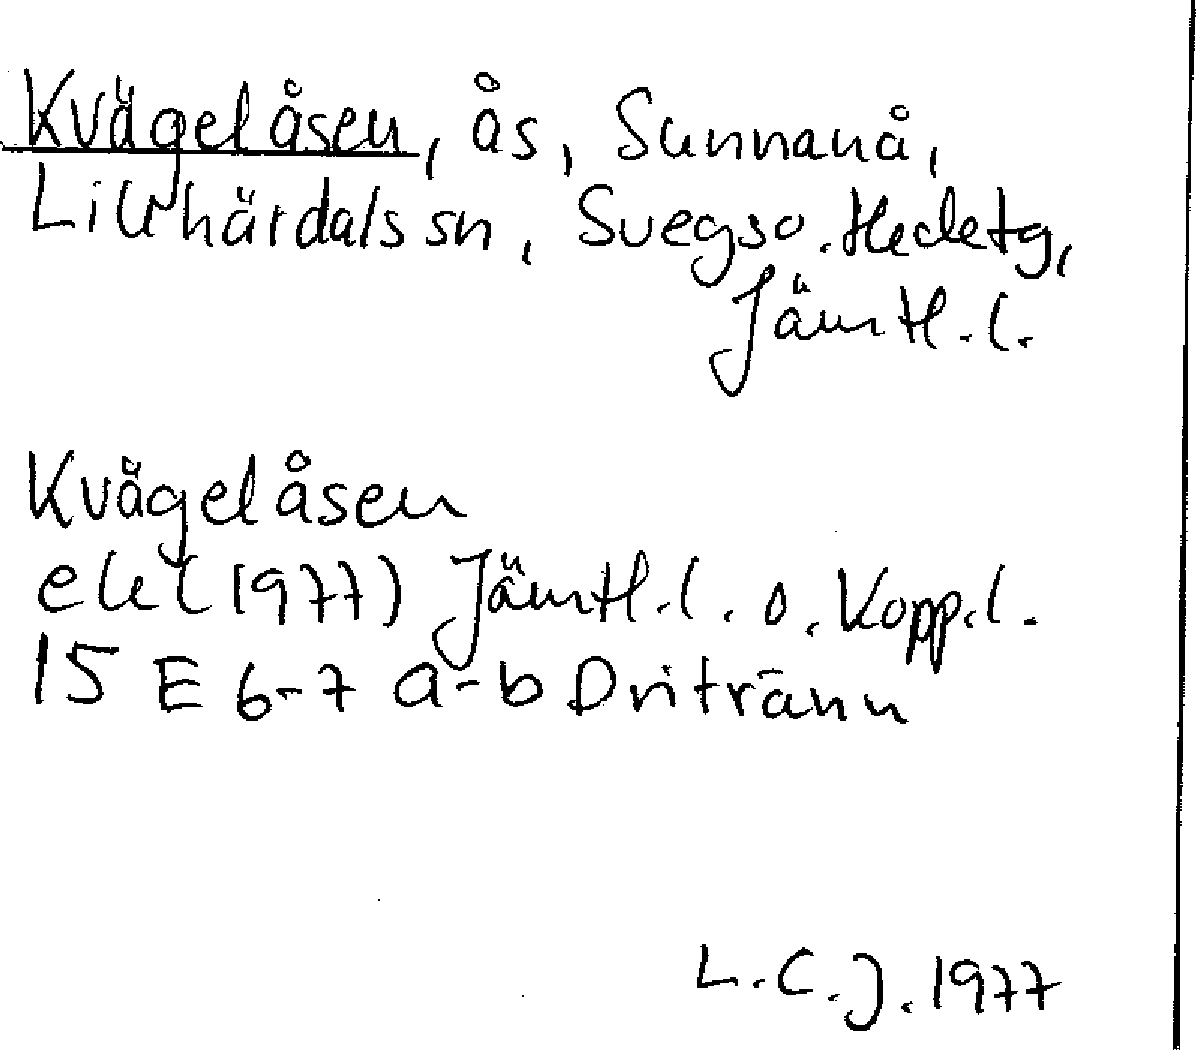 Kvägelåsen, ås, Sunnanå,
Lillhärdals sn, Svegs o. Hede tg,
Jämtl. l.
Kvägelåsen
ekbl (1977) Jämtl. l. o. Kopp. l.
15 E 6-7 a-b Dritränn
L. C. J. 1977